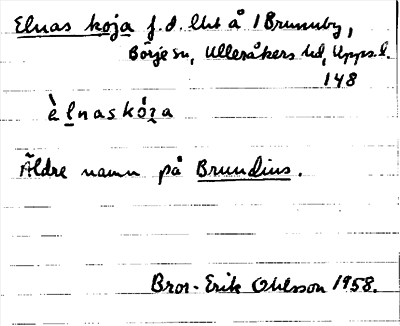 Elnas koja f.d. lht å 1 Brunnby,
Börje sn, Ulleråkers hd, Upps. l.
148
è l n a s k ó z a
Äldre namn på Brundius.
Bror-Erik Ohlsson 1958.